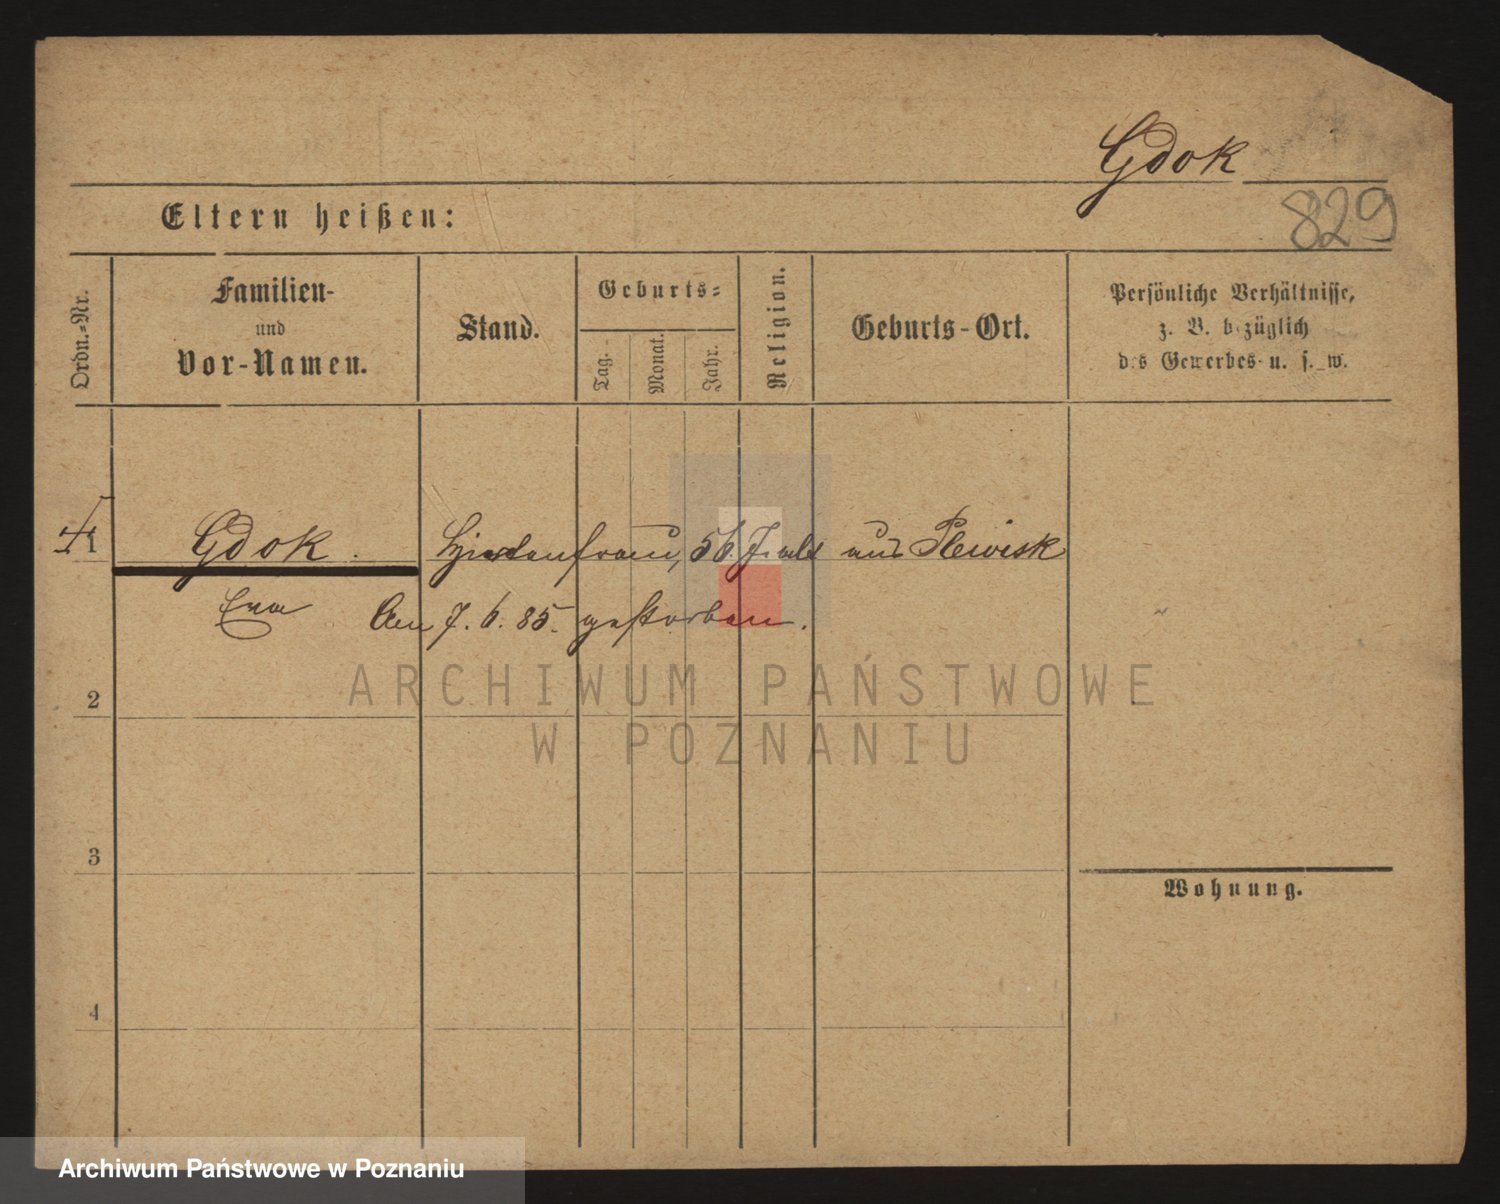 Gdok
829
Eltern heißen:
Ordn.-Nr.
Familien-
und
Vor-Namen.
Stand.
Geburts-
Tag.
Monat.
Jahr.
Religion.
Geburts-Ort.
Persönliche Verhältnisse,
z. B. bezüglich
des Gewerbes u. s. w.
1 Gdok. Hirtenfrau, 56 J. alt aus Plewisk
Eva Am 7. 6. 85. gestorben.
ARCHIWUM PAŃSTWOWE
W POZNANIU
2
3
Wohnung.
4
Archiwum Państwowe w Poznaniu